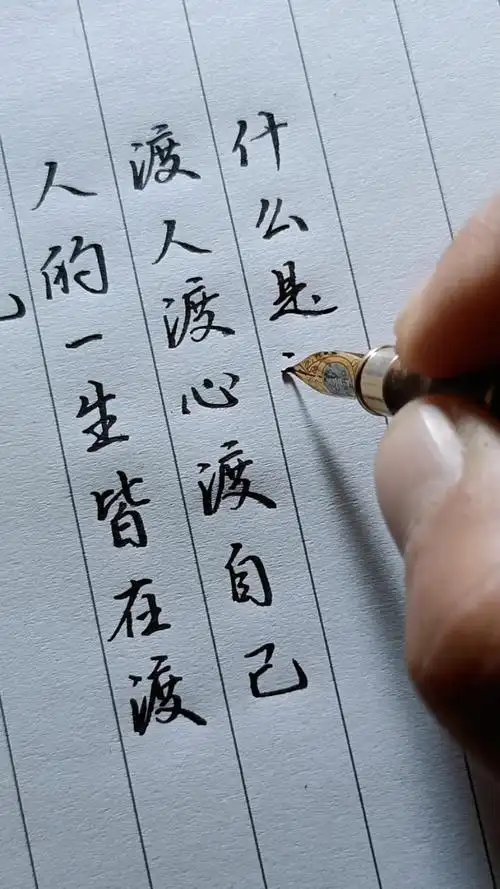 什么是
渡人渡心渡自己
人的一生皆在渡